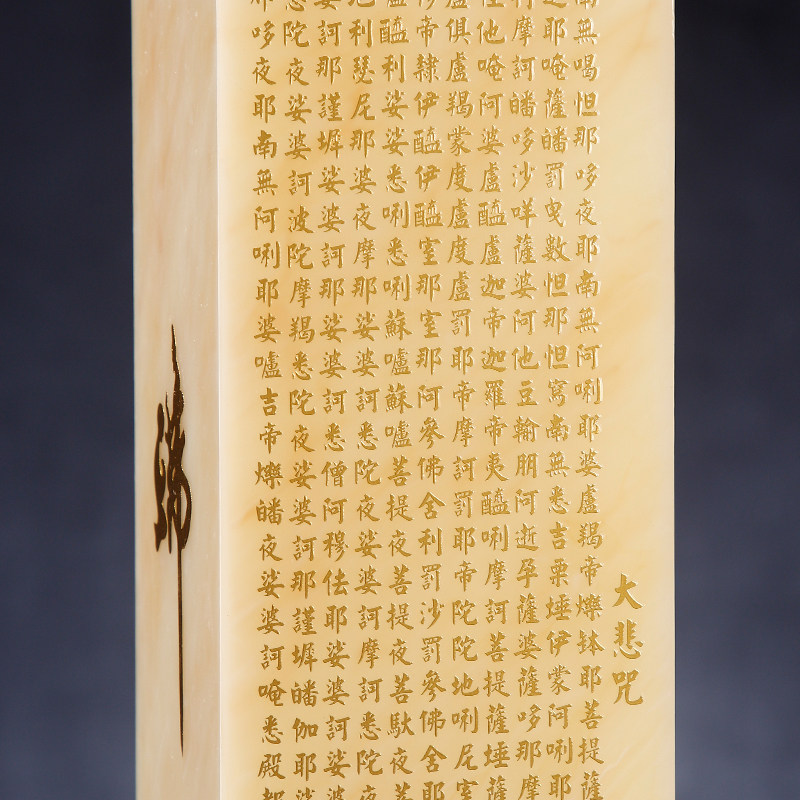 大悲咒
南無喝怛那哆夜耶南無阿唎耶婆盧羯帝爍鉢耶菩提薩
耶唵薩皤罰曳數怛那怛寫南無悉吉栗埵伊蒙阿唎耶
摩訶皤哆沙咩薩婆阿他豆輸朋阿逝孕薩婆薩哆那摩
他唵阿婆盧醯盧迦帝迦羅帝夷醯唎摩訶菩提薩埵薩
盧俱盧羯蒙度盧度盧罰耶帝摩訶罰耶帝陀陀地唎尼室
帝隸伊醯伊醯室那室那阿參佛舍利罰沙罰參佛舍耶
醯利娑娑悉唎悉唎蘇嚧蘇嚧菩提夜菩提夜菩馱夜菩
尼利瑟尼那婆夜摩那娑婆訶悉陀夜娑婆訶摩訶悉陀夜
婆訶那謹墀娑婆訶那娑婆訶悉僧阿穆佉耶娑婆訶娑婆
悉陀夜娑婆訶波陀摩羯悉陀夜娑婆訶那謹墀皤伽耶娑
耶哆夜耶南無阿唎耶婆嚧吉帝爍皤夜娑婆訶唵悉殿都